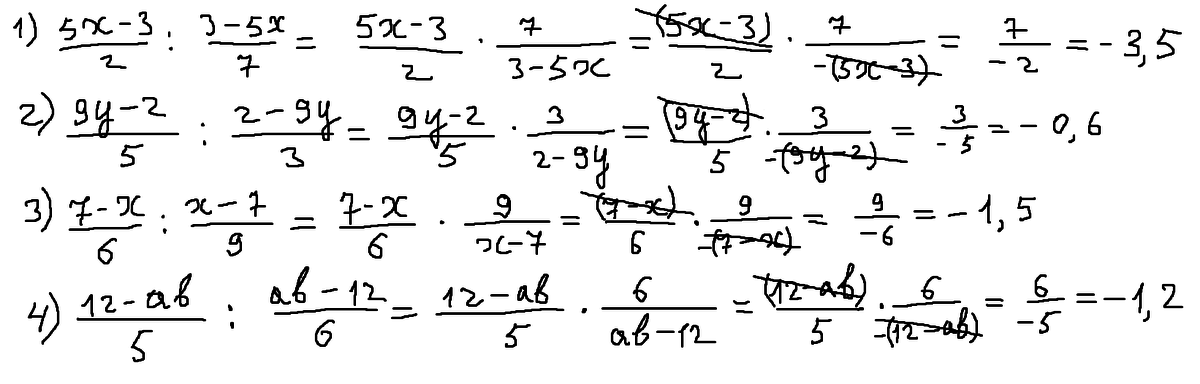 1) (5x-3)/2 : (3-5x)/7 = (5x-3)/2 · 7/(3-5x) = (5x-3)/2 · 7/-(5x-3) = 7/-2 = -3,5
2) (9y-2)/5 : (2-9y)/3 = (9y-2)/5 · 3/(2-9y) = (9y-2)/5 · 3/-(9y-2) = 3/-5 = -0,6
3) (7-x)/6 : (x-7)/9 = (7-x)/6 · 9/(x-7) = (7-x)/6 · 9/-(7-x) = 9/-6 = -1,5
4) (12-ab)/5 : (ab-12)/6 = (12-ab)/5 · 6/(ab-12) = (12-ab)/5 · 6/-(12-ab) = 6/-5 = -1,2